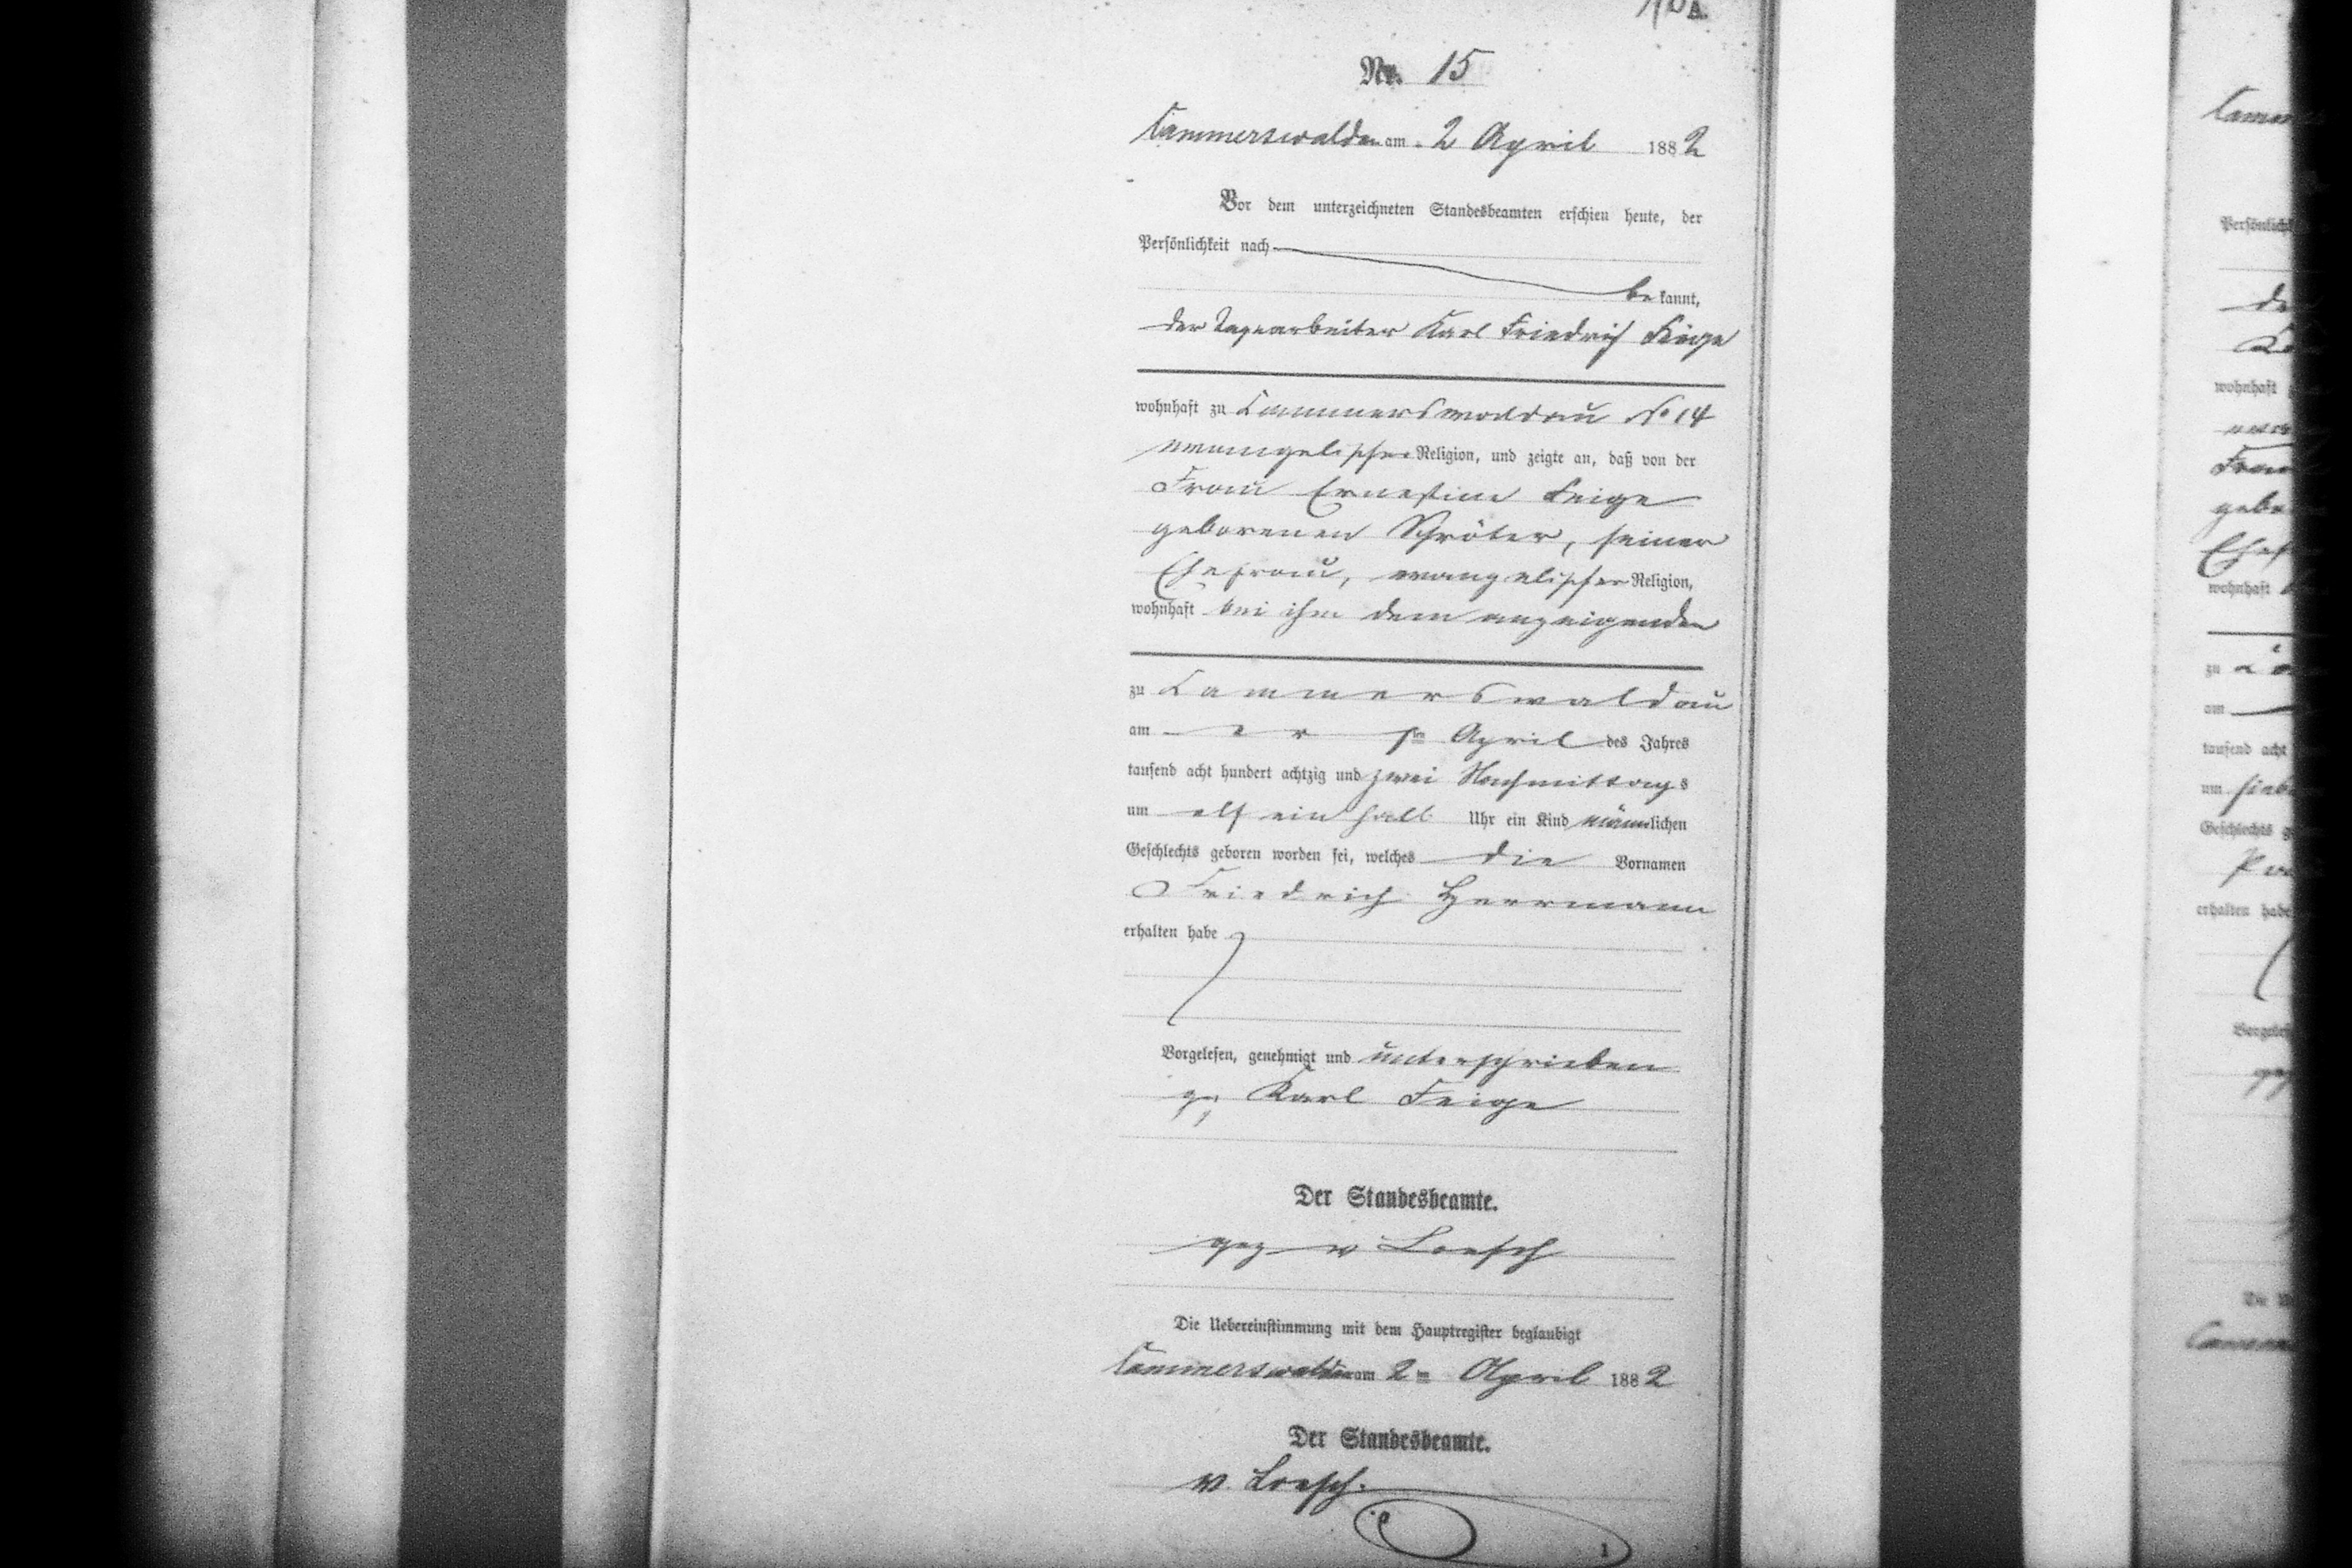 Nr. 15
Cammerswaldau am 2 April 1882
Vor dem unterzeichneten Standesbeamten erschien heute, der
Persönlichkeit nach
bekannt,
der Tagearbeiter Karl Friedrich Feige
wohnhaft zu Kammerswaldau No 14
evangelischer Religion, und zeigte an, daß von der
Frau Ernestine Feige
geborenen Schröter, seiner
Ehefrau, evangelischer Religion,
wohnhaft bei ihm dem anzeigenden
zu Kammerswaldau
am ersten April des Jahres
tausend acht hundert achtzig und zwei Nachmittags
um elf ein halb Uhr ein Kind männlichen
Geschlechts geboren worden sei, welches die Vornamen
Friedrich Herrmann
erhalten habe
Vorgelesen, genehmigt und unterschrieben
gez Karl Feige
Der Standesbeamte.
gez v Loesch
Die Uebereinstimmung mit dem Hauptregister beglaubigt
Cammerswaldau am 2ten April 1882
Der Standesbeamte.
v. Loesch.
1